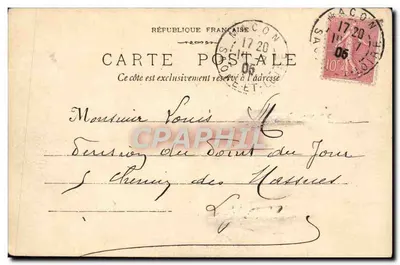 RÉPUBLIQUE FRANÇAISE
CARTE POSTALE
Ce côté est exclusivement réservé à l'adresse
MACON
17 20
06
SAONE-ET-LOIRE
MACON
17 20
06
CPAPHIL
Monsieur Louis
Pension du Point du Jour
5 Chemin des Massues
Lyon